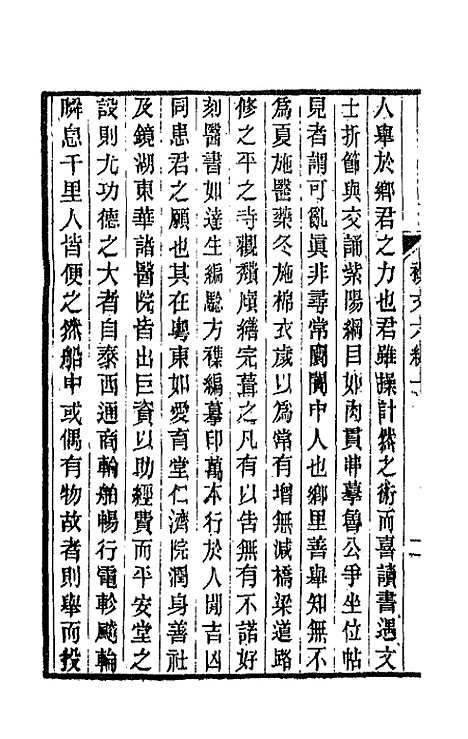 人舉於鄉君之力也君雖操計然之術而喜讀書遇文
士折節與交誦紫陽綱目如肉貫丳摹魯公爭坐位帖
見者謂可亂真非尋常闤闠中人也鄉里善舉知無不
爲夏施醫藥冬施棉衣歲以爲常有增無減橋梁道路
修之平之寺觀頹廢繕完葺之凡有以告無有不諾好
刻醫書如達生編驗方襍編摹印萬本行於人間吉凶
同患君之願也其在粵東如愛育堂仁濟院潤身善社
及鏡湖東華諸醫院皆出巨資以助經費而平安堂之
設則尤功德之大者自泰西通商輪舶暢行電軫飇輪
瞬息千里人皆便之然船中或偶有物故者則舉而投
襍文六編十